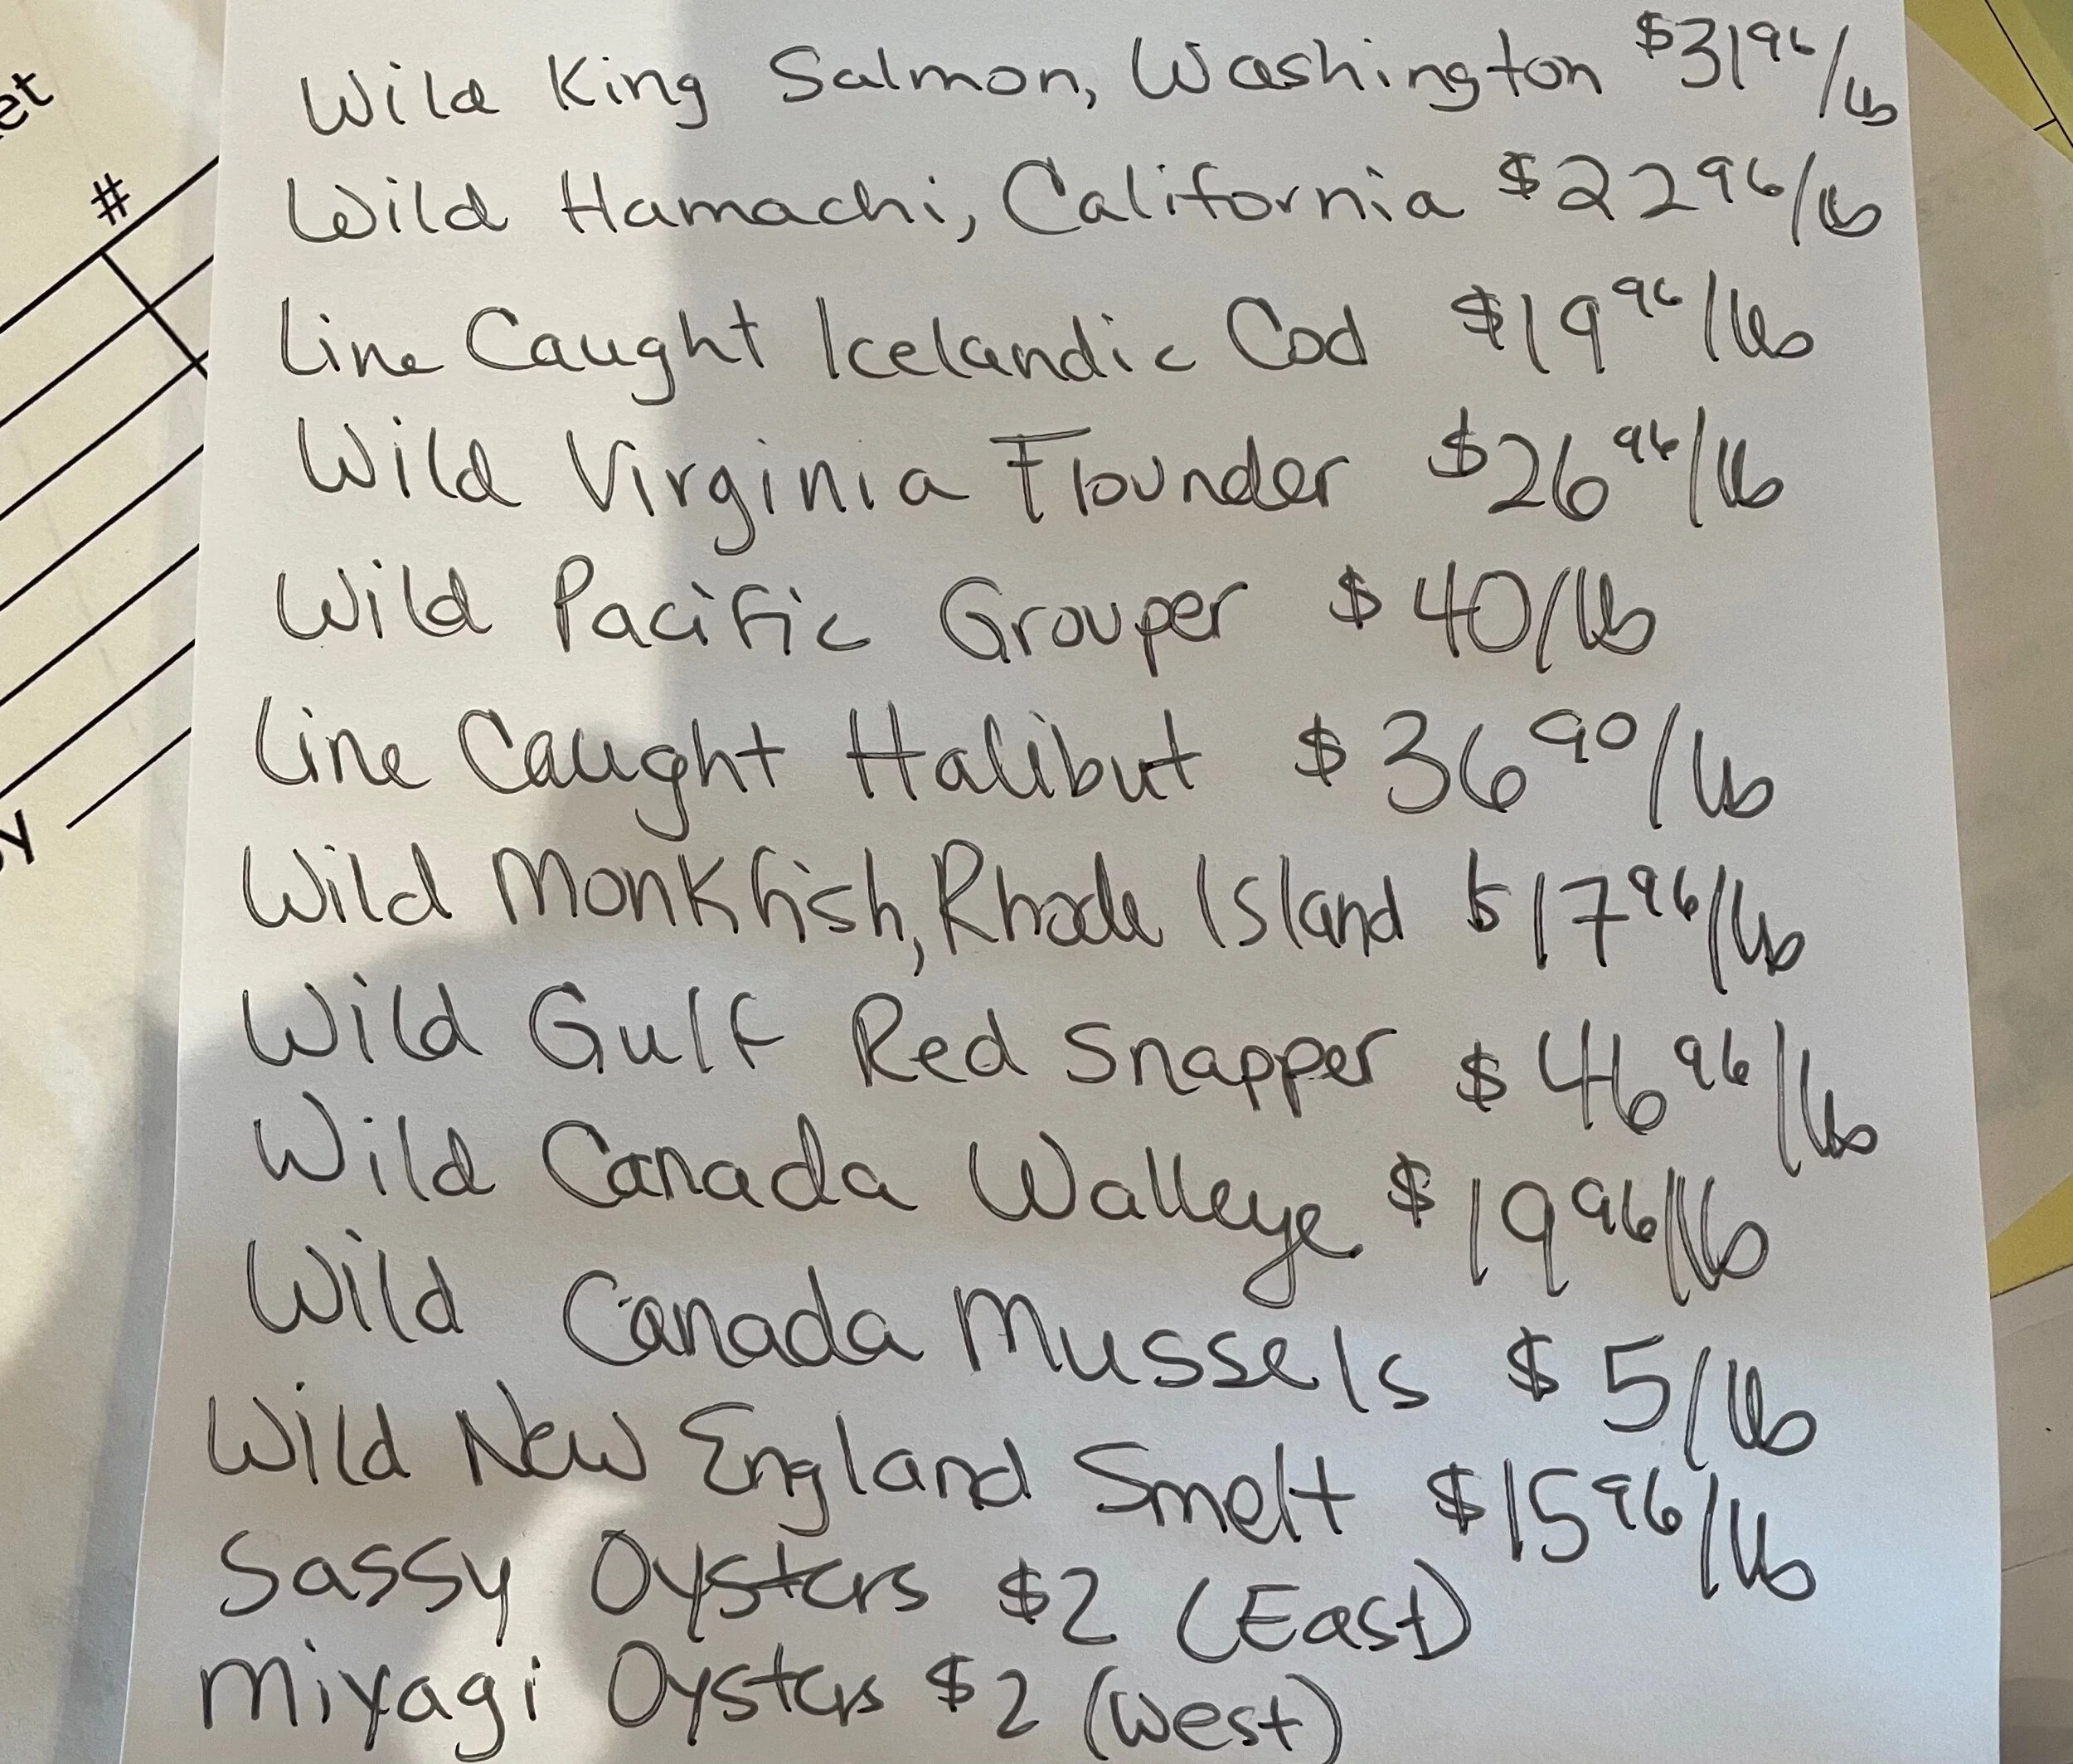 et
#
y
Wild King Salmon, Washington $31⁹⁶/lb
Wild Hamachi, California $22⁹⁶/lb
Line Caught Icelandic Cod $19⁹⁶/lb
Wild Virginia Flounder $26⁹⁶/lb
Wild Pacific Grouper $40/lb
Line Caught Halibut $36⁹⁰/lb
Wild Monkfish, Rhode Island $17⁹⁶/lb
Wild Gulf Red Snapper $46⁹⁶/lb
Wild Canada Walleye $19⁹⁶/lb
Wild Canada Mussels $5/lb
Wild New England Smelt $15⁹⁶/lb
Sassy Oysters $2 (East)
Miyagi Oysters $2 (West)